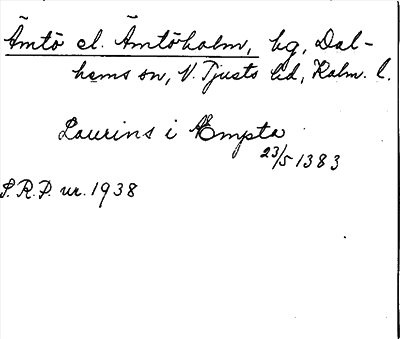 Ämtö el. Ämtöholm, hg, Dal-
hems sn, N. Tjusts hd, Kalm. l.
Laurins i Æmpta
23/5 1383
S.R.P. nr. 1938